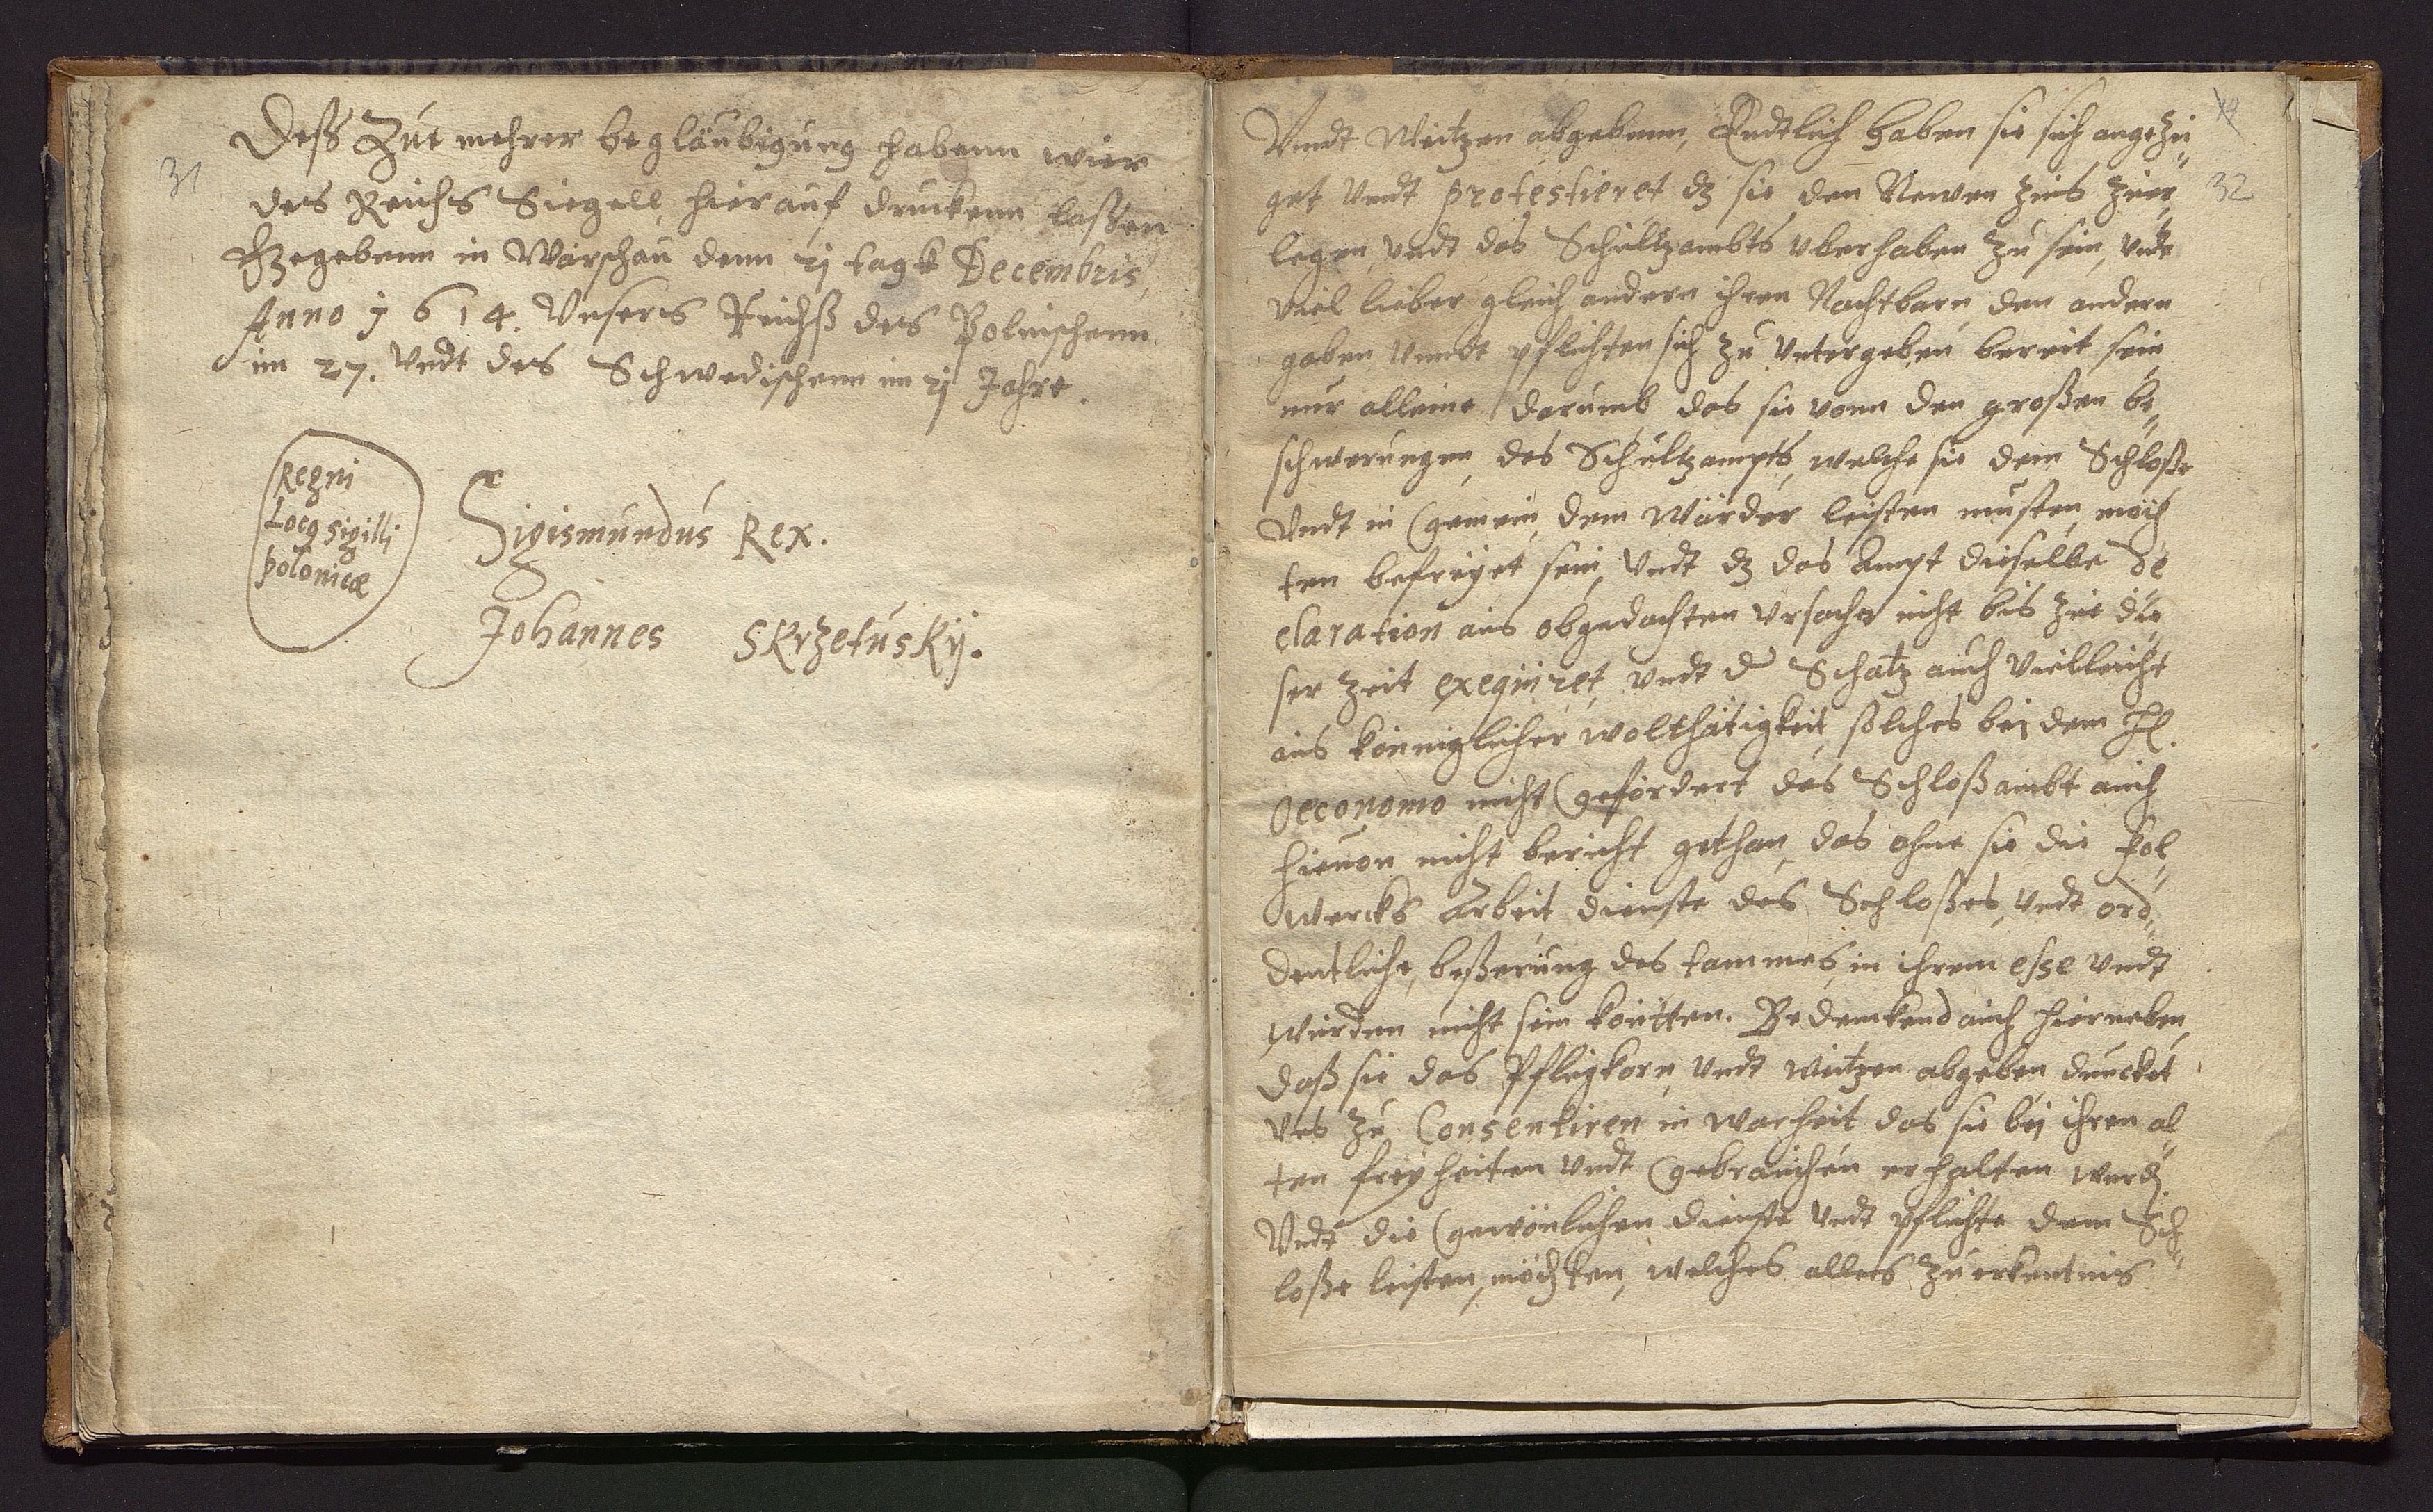 31
Deß Zue mehrer beglaubigung habenn wier
des Reichs Siegell, hierauf druckenn laßen
Gegebenn in Warschau denn 21 tagk Decembris,
Anno 1614. Unsers Reichß des Polnischenn
im 27. Vndt des Schwedischenn im 21 Jahre.
Regni
Locq sigilli
polonicæ
Sigismundus Rex.
Johannes Skrzetuskÿ.
14
32
Vnndt Weitzen abgebenn, Endtlich haben sie sich angezei„
get Vndt protestieret dz sie den Newen zins zuer„
legen, vndt des Schultzambts vberhaben zu sein, vndt
viel lieber gleich andern ihren Nachtbarn den andern
gaben vnndt pflichten sich zu vntergeben bereit sein
nur alleine darumb das sie vonn den großen be„
schwerungen, des Schultzampts, welche sie dem Schloße
Vndt in gemein, dem Wärder leisten musten, möch
ten befreyet sein, Vndt dz das Ampt dieselbe de
claration aus obgedachten vrsachen nicht bis zue die„
ser zeit exequiret, vndt d Schatz auch vielleicht
aus könniglicher wolthätigkeit, solches bei dem H.
Oeconomo nicht gefordert des Schloßambt auch
hieuon nicht bericht gethan, das ohne sie die fol„
wercks Arbeit, dienste des Schloßes, vndt ord„
dentliche, beßerung des tammes, in ihrem esse vndt
würden nicht sein köntten. Bedenckend auch hierneben,
daß sie das Pflugkorn, vndt weitzen abgeben duncket
vns zu Consentiren in warheit das sie bei ihren al„
ten freyheiten vndt gebrauchen erhalten werd
Vndt die gewönlichen dienste vndt pflichte dem Sch„
loße leisten, möchten, welches alles zu erkentnis